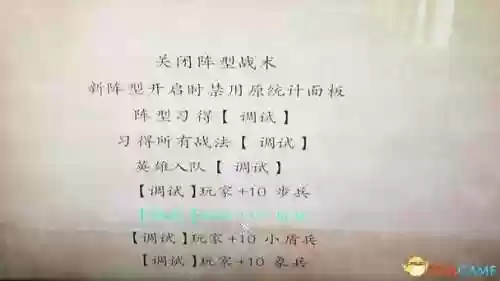 关闭阵型战术
新阵型开启时禁用原统计面板
阵型习得【 调试】
习得所有战法【 调试】
英雄入队【 调试】
【调试】玩家+10 步兵
【调试】玩家+10
【调试】玩家+10 小盾兵
【调试】玩家+10 象兵
GAME